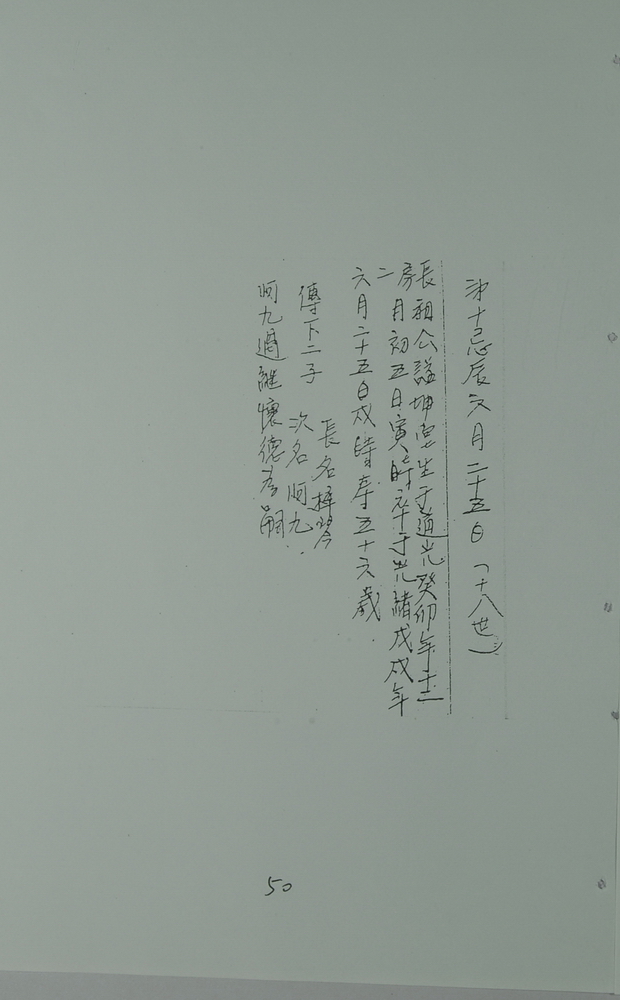 第十忌辰六月二十五日「十八世」
長房祖公諡坤 生于道光癸卯年十二
月初五日寅時卒于光緒戊戌年
六月二十五日戌時享壽五十六歲
傳下二子
長名梓
次名阿九
阿九過繼懷德為嗣
50